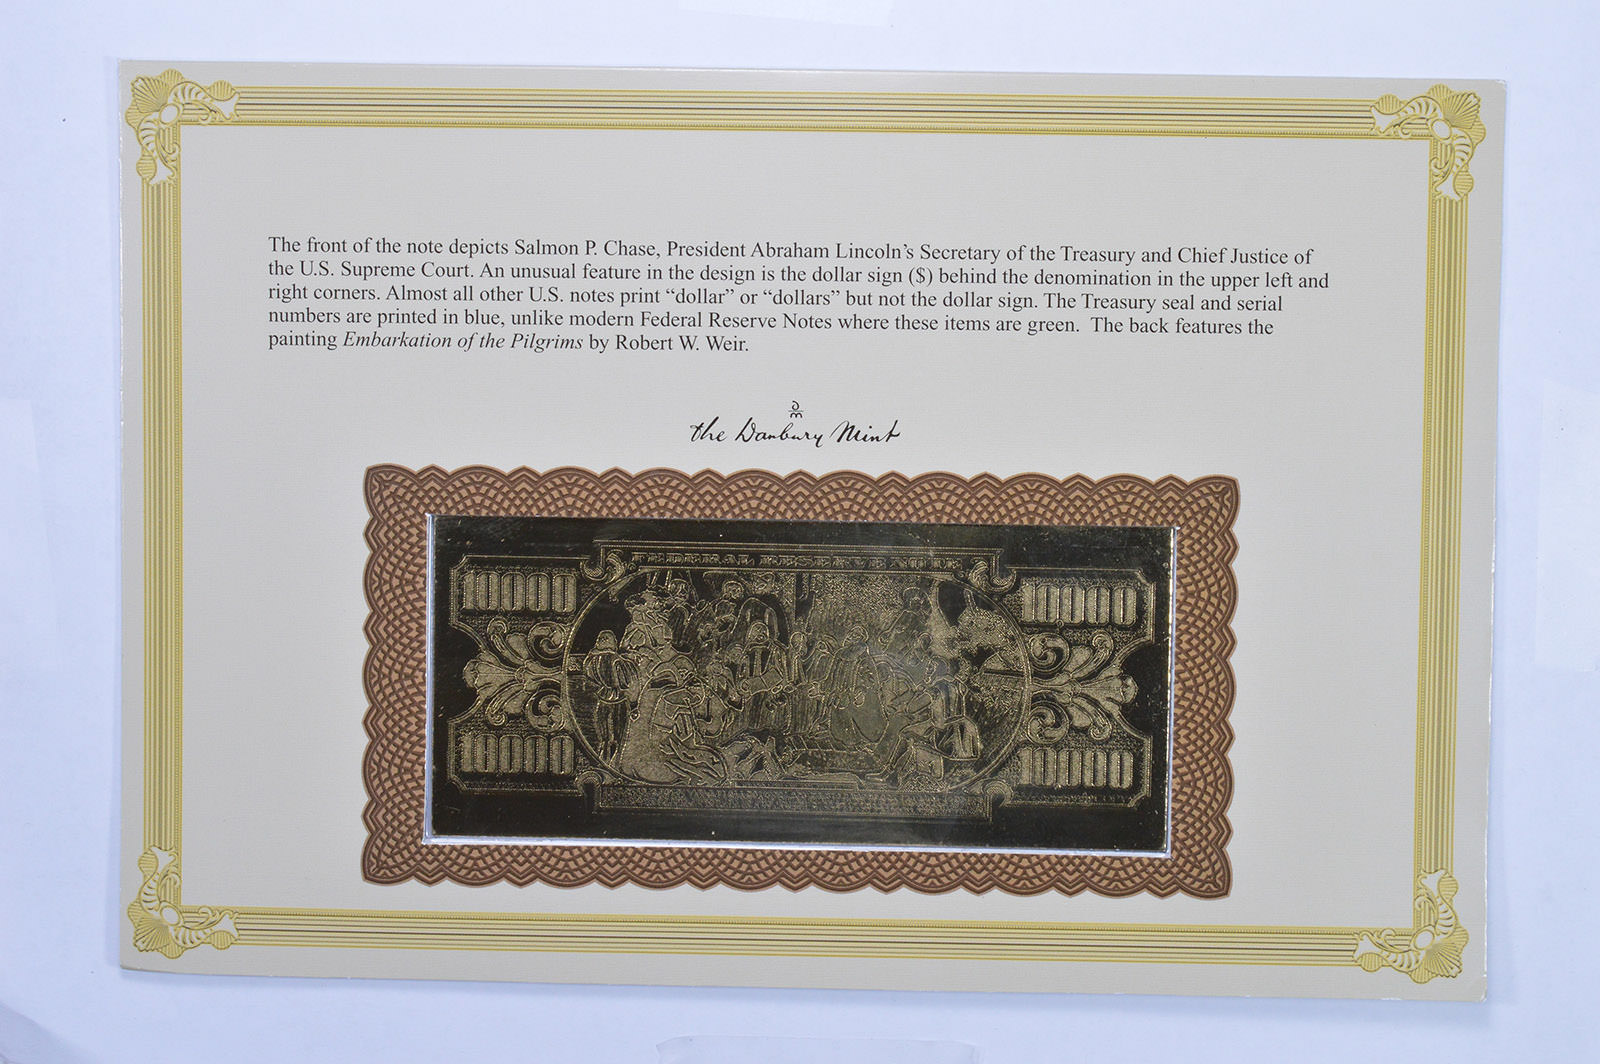 The front of the note depicts Salmon P. Chase, President Abraham Lincoln's Secretary of the Treasury and Chief Justice of
the U.S. Supreme Court. An unusual feature in the design is the dollar sign ($) behind the denomination in the upper left and
right corners. Almost all other U.S. notes print “dollar” or “dollars” but not the dollar sign. The Treasury seal and serial
numbers are printed in blue, unlike modern Federal Reserve Notes where these items are green. The back features the
painting Embarkation of the Pilgrims by Robert W. Weir.
the Danbury Mint
FEDERAL RESERVE NOTE
10000 10000
10000 10000